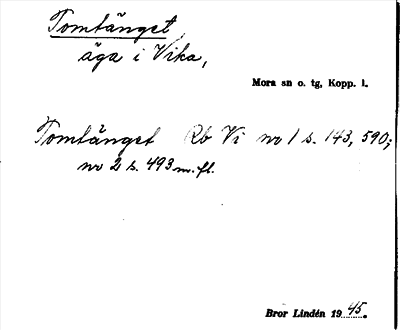 Tomtänget,
äga i Vika,
Mora sn o. tg, Kopp. l.
Tomtänget Rb Vi nr 1 s. 143, 590;
nr 2 s. 493 m. fl.
Bror Lindén 1945.